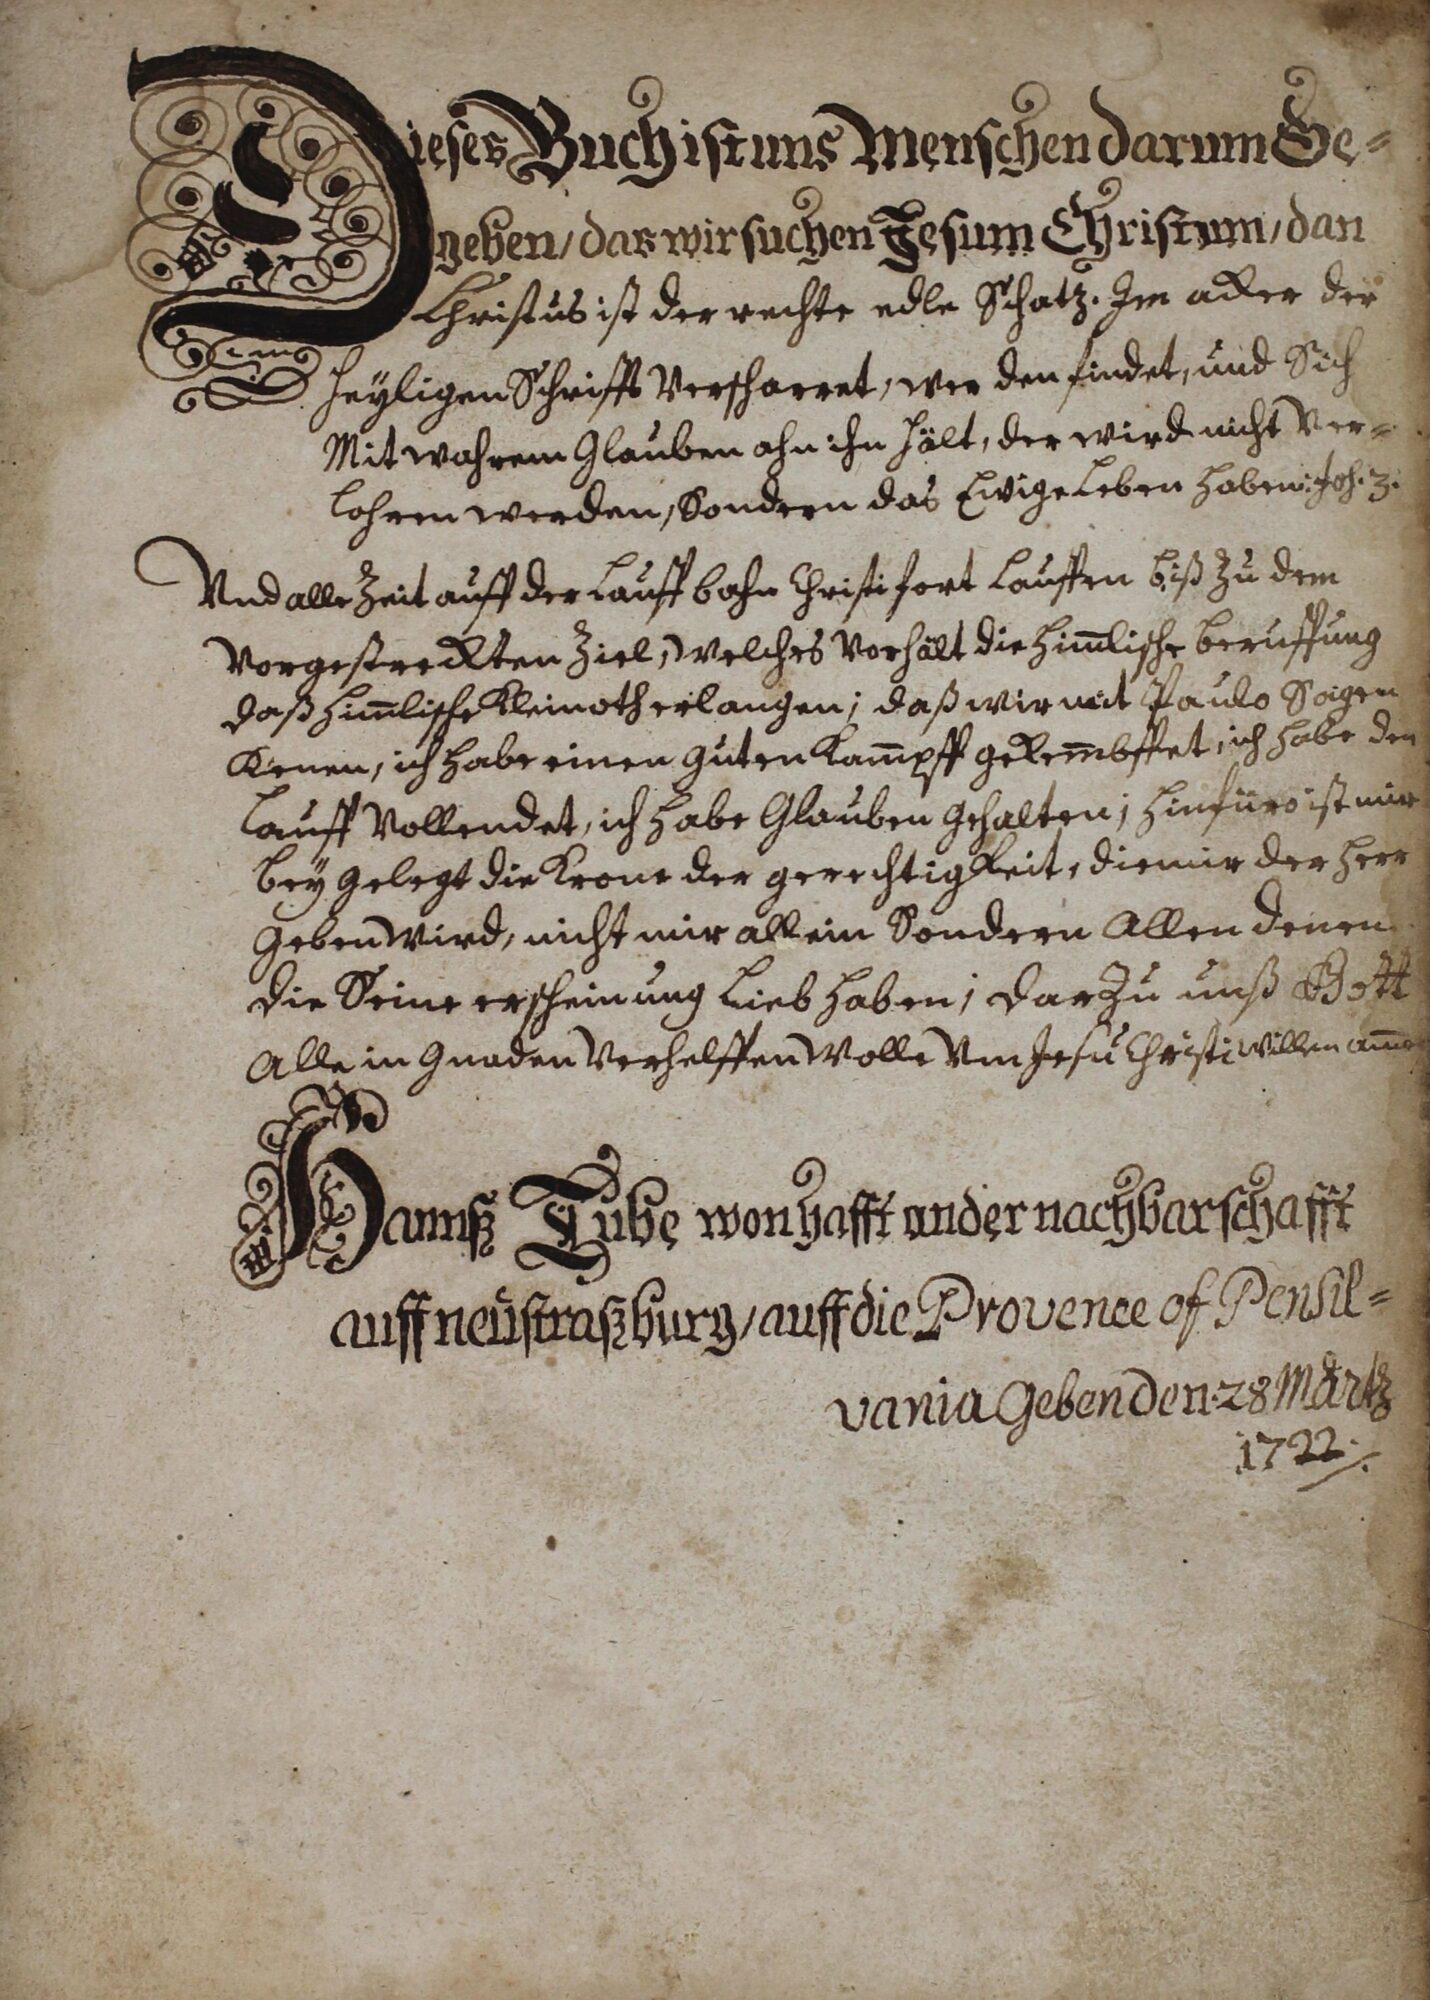 Dieses Buch ist uns Menschen darum Ge=
geben / das wir suchen Jesum Christum / dan
Christus ist der rechte edle Schatz. Im acker der
Heyligen Schrifft Verscharret, wer den findet, und Sich
Mit wahrem Glauben ahn ihn hält, der wird nicht Ver=
lohren werden, Sondern das Ewige Leben haben: Joh. 3.
Und alle Zeit auff der Lauffbahn Christi fort Lauffen biß Zu dem
Vorgestreckten Ziel, welches Vorhält die him̅lische beruffung
daß him̅lische Kleinoth erlangen; daß wir mit Paulo Sagen
Kenen, ich habe einen guten Kam̅pff gekem̅bffet, ich habe den
Lauff Vollendet, ich habe Glauben gehalten; hinfüro ist mir
bey gelegt die Krone der gerechtigkeit, die mir der Herr
geben Wird, nicht mir allein Sondern Allen denen
die Seine erscheinung Lieb haben; darzu unß Gott
Alle in Gnaden Verhelffen Wolle Um Jesu Christi willen am̅en
Hannß Tube wonhafft an der nachbarschafft
auff neüstraßburg / auff die Provence of Pensil=
vania Geben den 28 Märtz
1722.